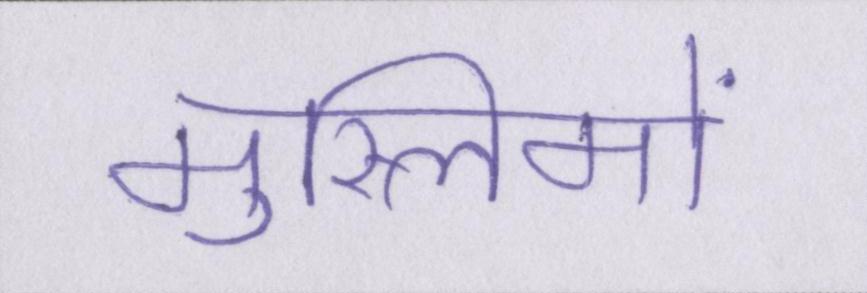 मुस्लिमों